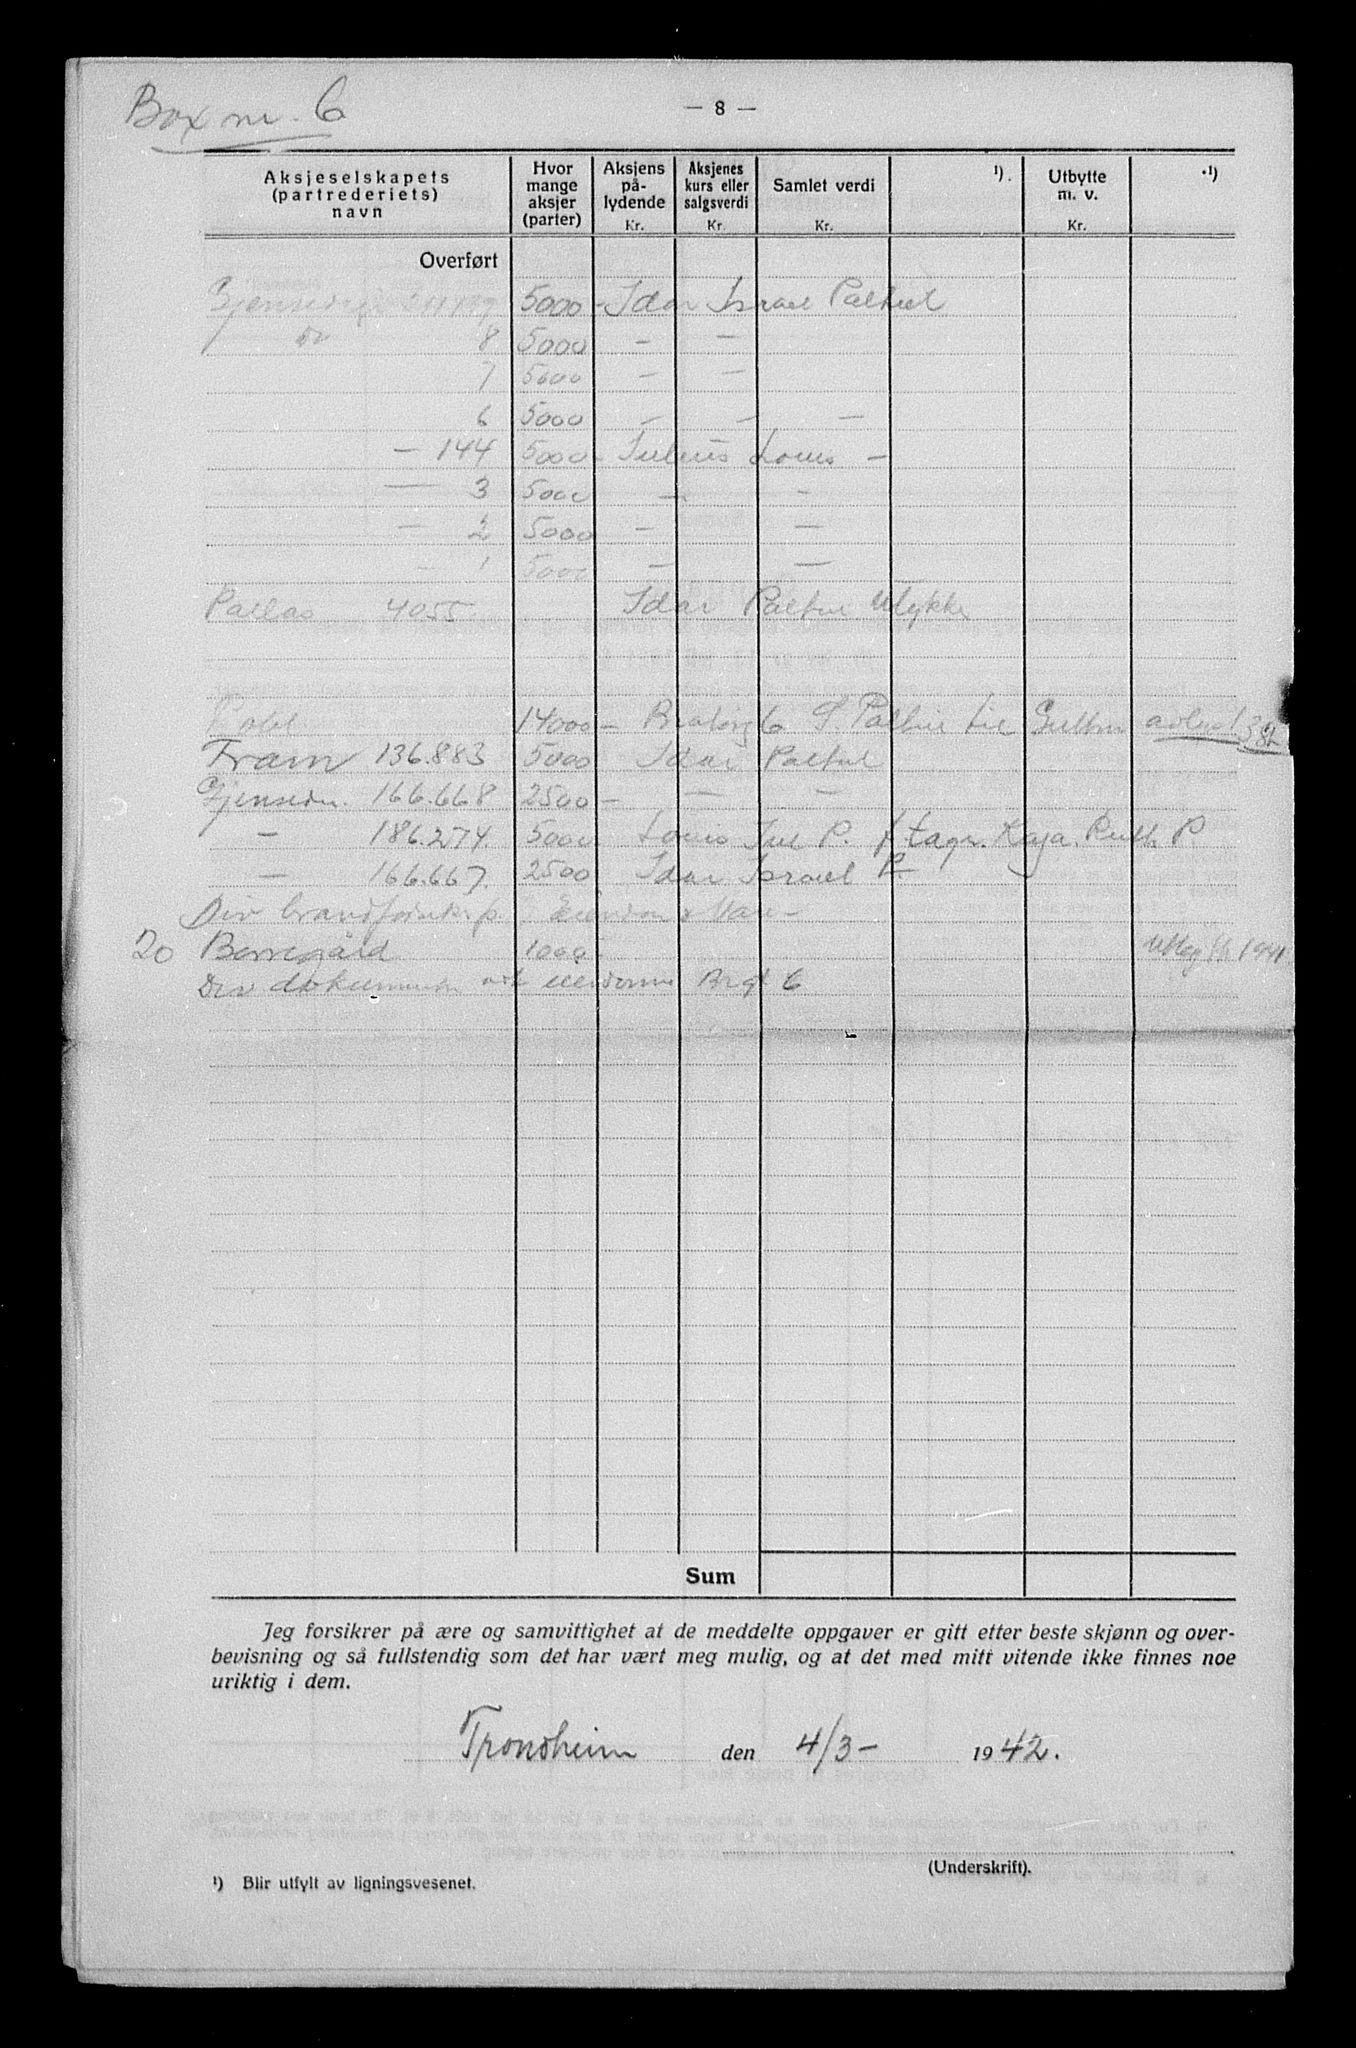 Box nr. 6
— 8 —
Aksjeselskapets (partrederiets) navn | Hvor mange aksjer (parter) | Aksjens pålydende Kr. | Aksjenes kurs eller salgsverdi Kr. | Samlet verdi Kr. | ¹). | Utbytte m. v. Kr. | ¹)
Overført
5000 – Idar Israel Paltiel
do 8 5000 — —
7 5000 — —
6 5000 — — —
— 144 5000 Julius Louis —
— 3 5000 — —
— 2 5000 — —
— 1 5000 — —
Pallas 4055 Idar Paltiel Ulykke
14000 – 6 Paltiel til
Fram 136.883 5000 Idar Paltiel
Gjensidn. 166.668 2500 – — —
— 186.274. 5000 Louis Jul P. f. Dagr. Kaja. Ruth P.
— 166.667. 2500 Idar Israel P.
Div brandforsikr p. Eiendom & Vare –
20 Borregård 1000 1941
Div dokumenter 6
Sum
Jeg forsikrer på ære og samvittighet at de meddelte oppgaver er gitt etter beste skjønn og over-
bevisning og så fullstendig som det har vært meg mulig, og at det med mitt vitende ikke finnes noe
uriktig i dem.
Trondheim den 4/3 – 1942.
(Underskrift).
¹) Blir utfylt av ligningsvesenet.